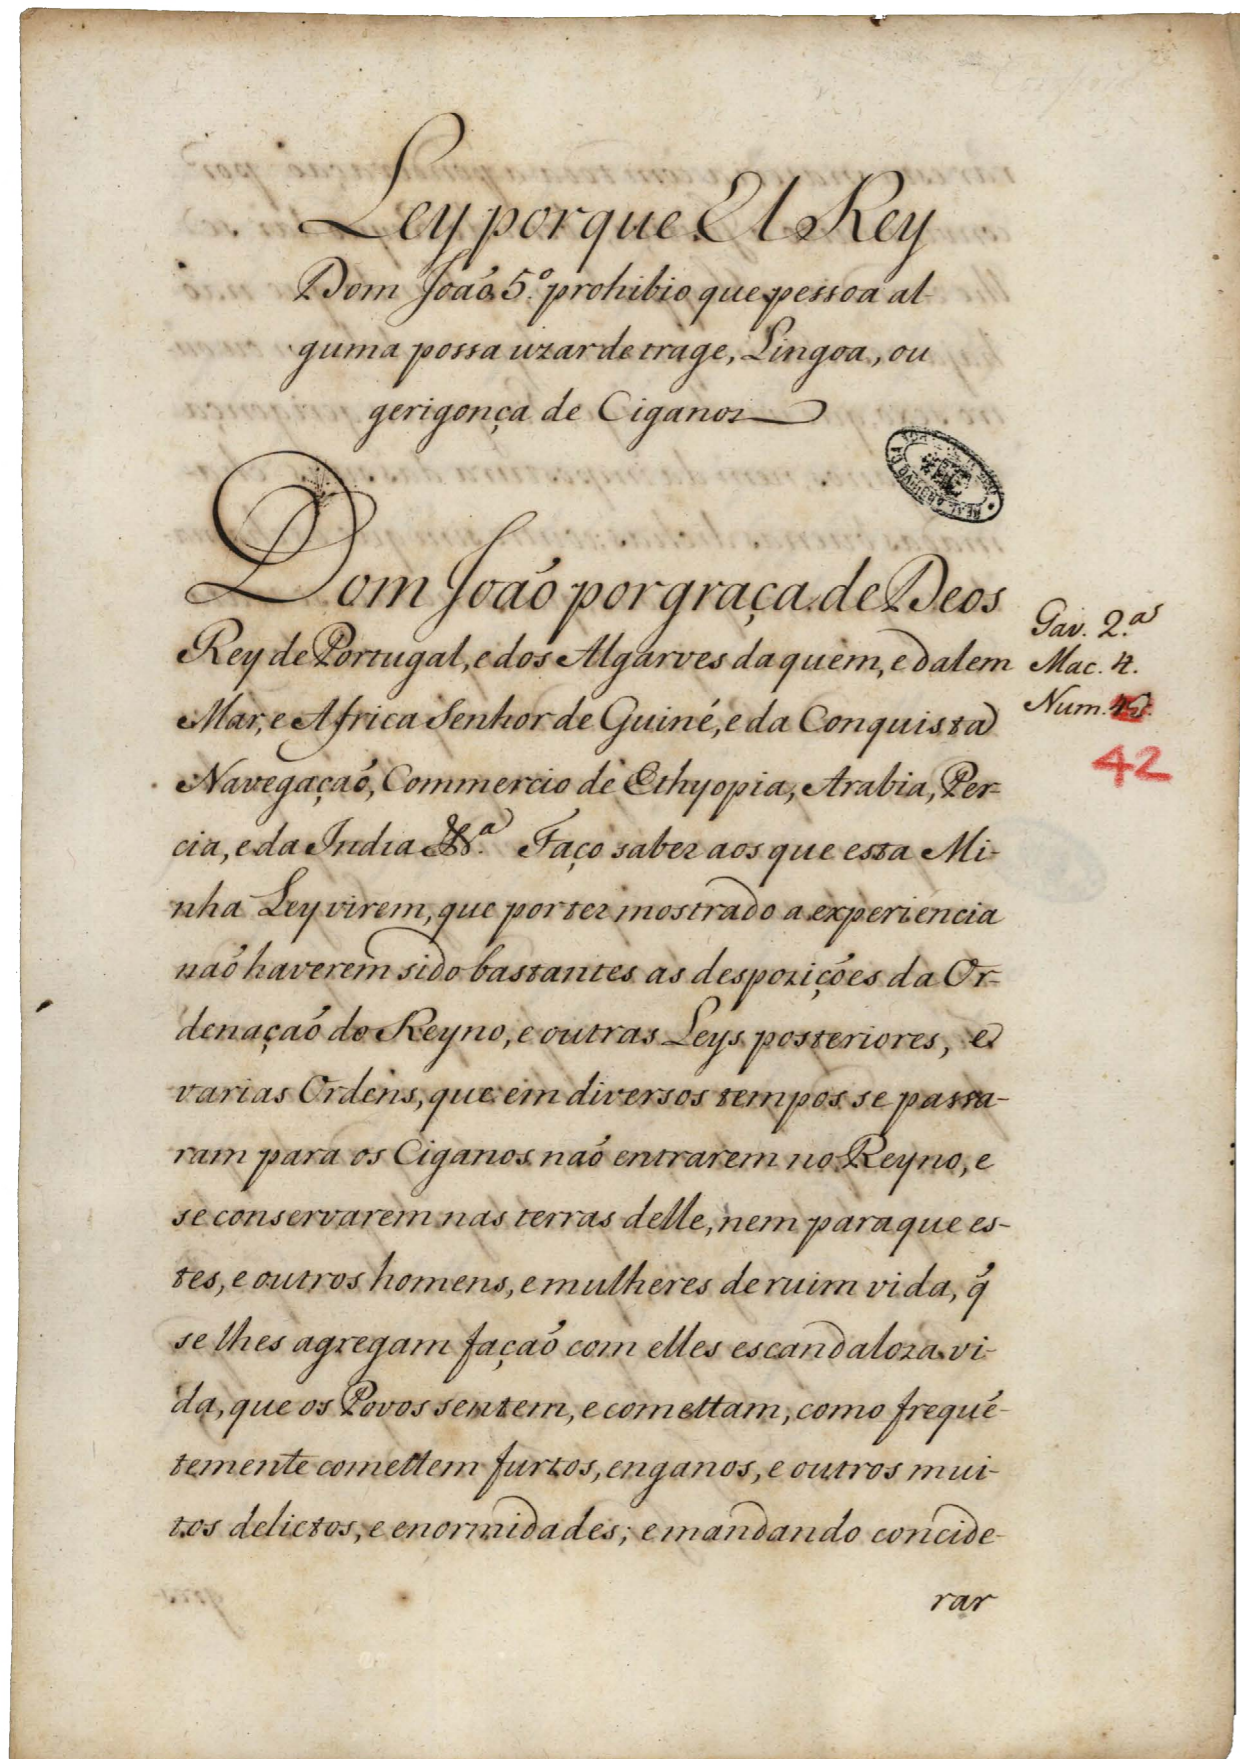 Ley porque El Rey
Dom João 5.º prohibio que pessoa al-
guma possa uzar de trage, Lingoa, ou
gerigonça de Ciganos
Dom João por graça de Deos
Rey de Portugal, e dos Algarves daquem, e dalem
Mar, e Africa Senhor de Guiné, e da Conquista
Navegação, Commercio de Ethyopia, Arabia, Per-
cia, e da India &.ª Faço saber aos que esta Mi-
nha Ley virem, que por ter mostrado a experiencia
não haverem sido bastantes as despozições da Or-
denação do Reyno, e outras Leys posteriores, e
varias Ordens, que em diversos tempos se passa-
ram para os Ciganos não entrarem no Reyno, e
se conservarem nas terras delle, nem para que es-
tes, e outros homens, e mulheres de ruim vida, q̃
se lhes agregam fação com elles escandaloza vi-
da, que os Povos sentem, e comettam, como frequẽ-
temente comettem furtos, enganos, e outros mui-
tos delictos, e enormidades; e mandando concide-
rar
Gav. 2.ª
Mac. 4.
Num.
42